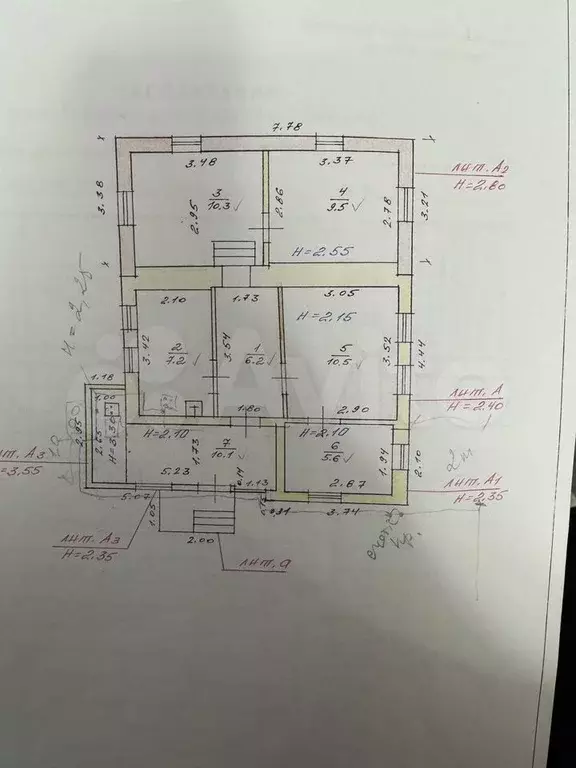 7.78
3.48
3.37
лит. А2
Н=2.80
3
10.3
4
9.5
3.38
2.95
2.86
2.78
3.21
Н=2.55
Н=2,25
2.10
1.73
3.05
Н=2.15
3.42
2
7.2
3.54
1
6.2
5
10.5
3.52
4.44
1.18
1.00
лит. А
Н=2.40
1.80
2.90
2.95
2.65
Н=3.30
Н=2.10
1.73
7
10.1
Н=2.10
6
5.6
1.94
2.10
лит. А3
=3.55
5.23
1.13
2.87
лит. А1
Н=2.35
5.07
3.74
1.05
лит. А3
Н=2.35
2.00
лит. а
Avito